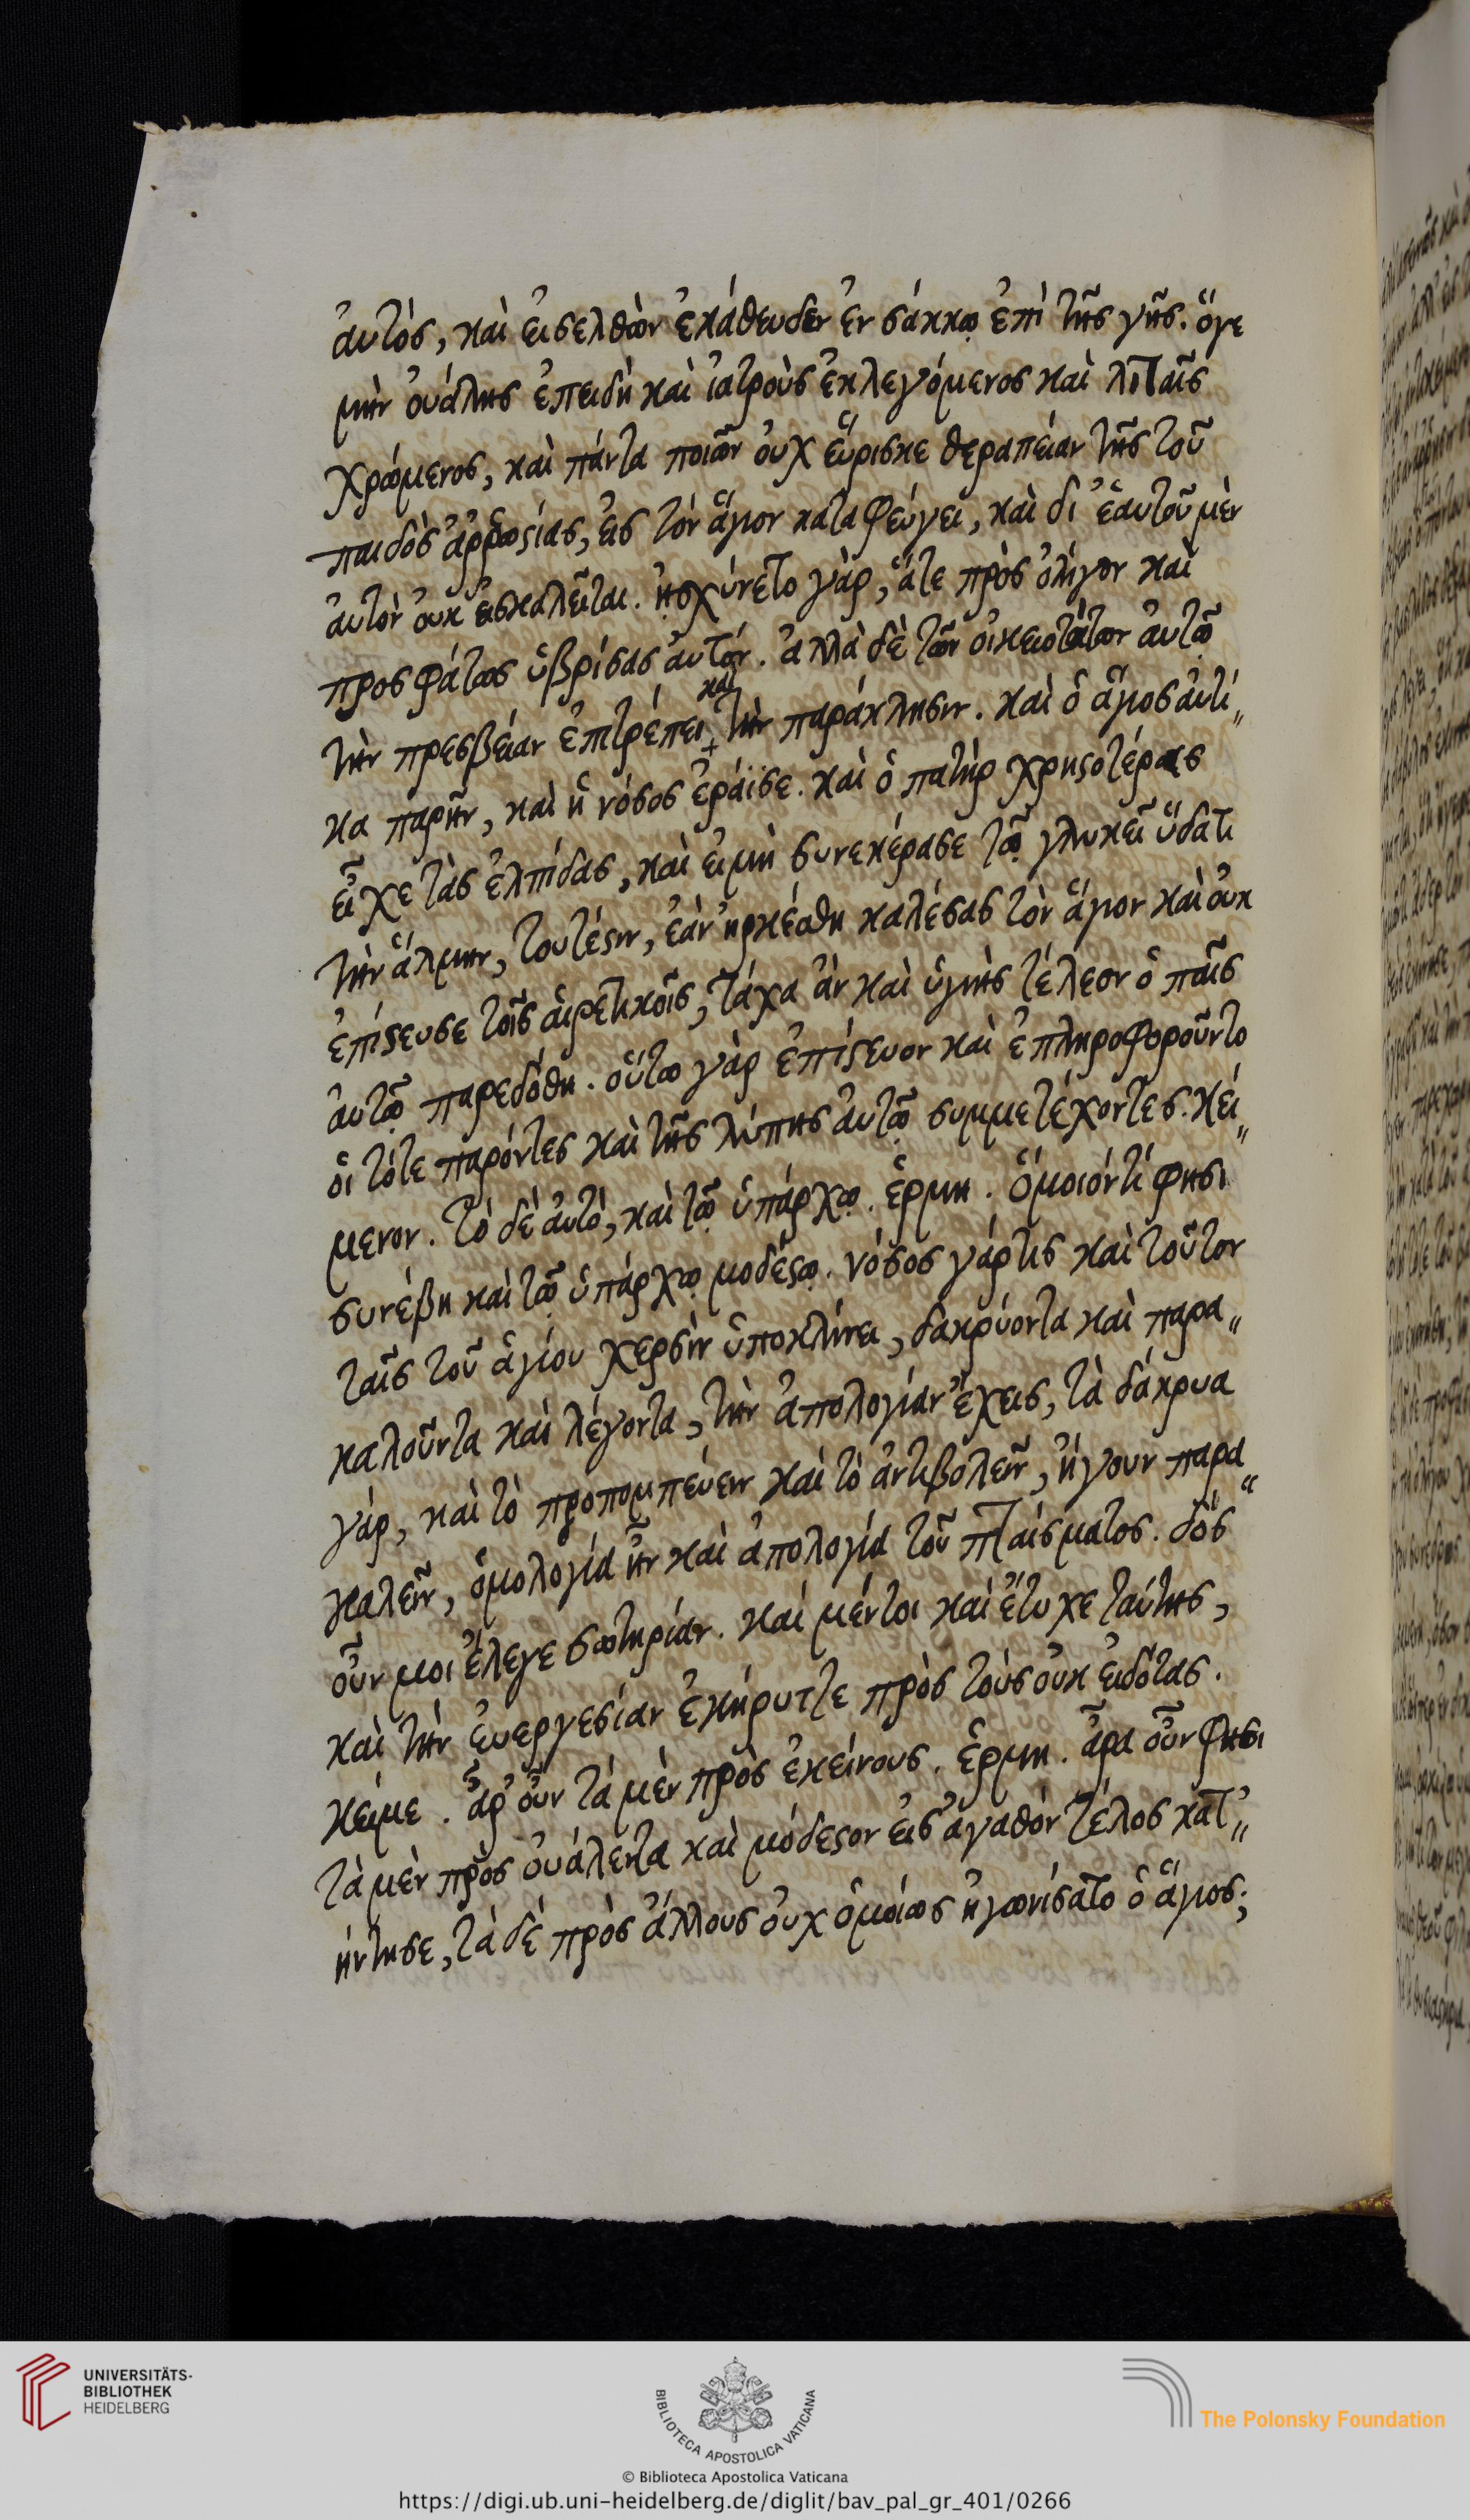 ἀυτὸς, καὶ ἐισελθὼν ἐκάθευδεν ἐν σάκκῳ ἐπὶ τῆς γῆς. ὅγε
μὴν ὀυάλης ἐπειδὴ καὶ ἰατροὺς ἐκλεγόμενος καὶ λιταῖς
χρώμενος, καὶ πάντα ποιῶν ὀυχ ἕυρισκε θεραπείαν τῆς τοῦ
παιδὸς ἀρρωστίας, ἐις τὸν ἅγιον καταφεύγει, καὶ δι' ἑαυτοῦ μὲν
ἀυτὸν ὀυκ ἐισκαλεῖται. ἠσχύνετο γὰρ, ἅτε πρὸς ὀλίγον καὶ
προσφάτως ὑβρίσας ἀυτόν. ἀλλὰ δὲ τῶν ὀικειοτάτων ἀυτῷ
τὴν πρεσβείαν ἐπιτρέπει καὶ τὴν παράκλησιν. καὶ ὁ ἅγιος ἀυτί„
κα παρῆν, καὶ ἡ νόσος ἐράϊσε. καὶ ὁ πατὴρ χρηστοτέρας
εἶχε τὰς ἐλπίδας, καὶ ἐιμὴ συνεκέρασε τῷ γλυκεῖ ὕδατι
τὴν ἅλμην, τουτέστιν, ἐὰν ἠρκέσθη καλέσας τὸν ἅγιον καὶ ὀυκ
ἐπίστευσε τοῖς ἁιρετικοῖς, τάχα ἂν καὶ ὑγιὴς τέλεον ὁ παῖς
ἀυτῷ παρεδόθη. οὕτω γὰρ ἐπίστευον καὶ ἐπληροφοροῦντο
ὁι τότε παρόντες καὶ τῆς λύπης ἀυτῷ συμμετέχοντες. κεί„
μενον. τὸ δὲ ἀυτὸ, καὶ τῷ ὑπάρχῳ. ἑρμη. ὅμοιόντί φησι
συνέβη καὶ τῷ ὑπάρχῳ μοδέστῳ. νόσος γάρτις καὶ τοῦτον
ταῖς τοῦ ἁγίου χερσὶν ὑποκλίνει, δακρύοντα καὶ παρα„
καλοῦντα καὶ λέγοντα, τὴν ἀπολογίαν ἔχεις, τὰ δάκρυα
γὰρ, καὶ τὸ προπομπεύειν καὶ τὸ ἀντιβολεῖν, ἤγουν παρα„
καλεῖν, ὁμολογία ἦν καὶ ἀπολογία τοῦ πταίσματος. δὸς
οὖν μοι ἔλεγε σωτηρίαν. καὶ μέντοι καὶ ἔτυχε ταύτης,
καὶ τὴν ἐυεργεσίαν ἐκήρυττε πρὸς τοὺς ὀυκ ἐιδότας.
κείμε. ἆρ' οὖν τὰ μὲν πρὸς ἐκείνους. ἑρμη. ἆρα οὖν φησι
τὰ μὲν πρὸς ὀυάλεντα καὶ μόδεστον ἐις ἀγαθὸν τέλος κατ„
ήντησε, τὰ δὲ πρὸς ἄλλους ὀυχ ὁμοίως ἠγωνίσατο ὁ ἅγιος;
UNIVERSITÄTS-
BIBLIOTHEK
HEIDELBERG
BIBLIOTECA APOSTOLICA VATICANA
The Polonsky Foundation
© Biblioteca Apostolica Vaticana
https://digi.ub.uni-heidelberg.de/diglit/bav_pal_gr_401/0266